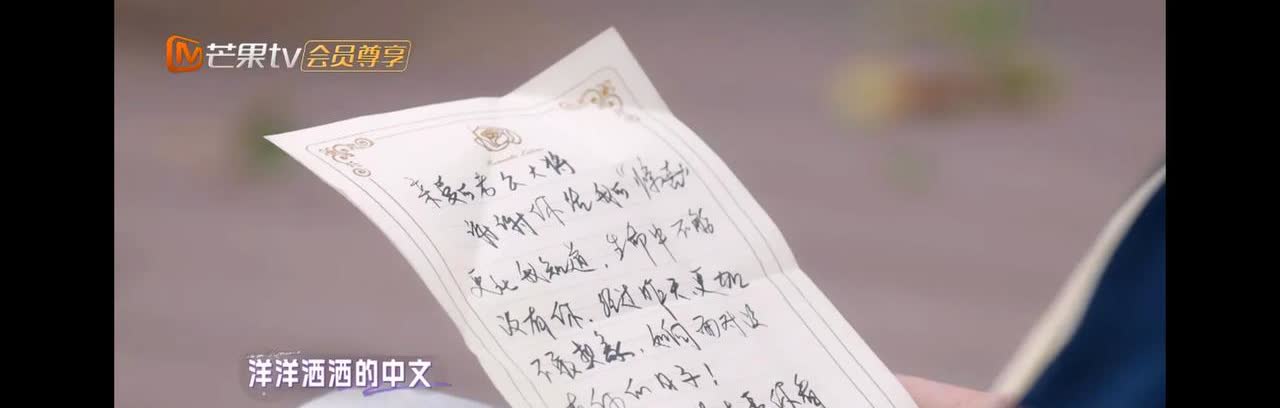 芒果tv 会员尊享
亲爱的老公大将
谢谢你给我的"惊喜"
更让我知道，生命中不能
没有你，经过昨天更加
不敢想象，如何面对没
有你的日子！
你看
洋洋洒洒的中文